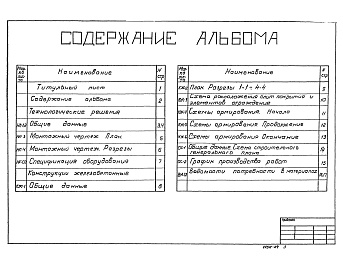 СОДЕРЖАНИЕ АЛЬБОМА
Наименование
Титульный лист 1
Содержание альбома 2
Технологические решения
Общие данные 3,4
Монтажный чертеж План 5
Монтажный чертеж. Разрезы 6
Спецификация оборудования 7
Конструкции железобетонные
Общие данные 8
Наименование
План Разрезы 1-1 ÷ 4-4 9
Схема расположения плит покрытия и элементов ограждения 10
Схемы армирования. Начало 11
Схемы армирования Продолжение 12
Схемы армирования Окончание 13
Общие данные Схема строительного генерального плана 14
График производства работ 15
Ведомости потребности в материалах